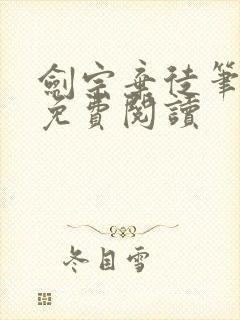 劍宗棄徒筆
免費閱讀
冬目雪